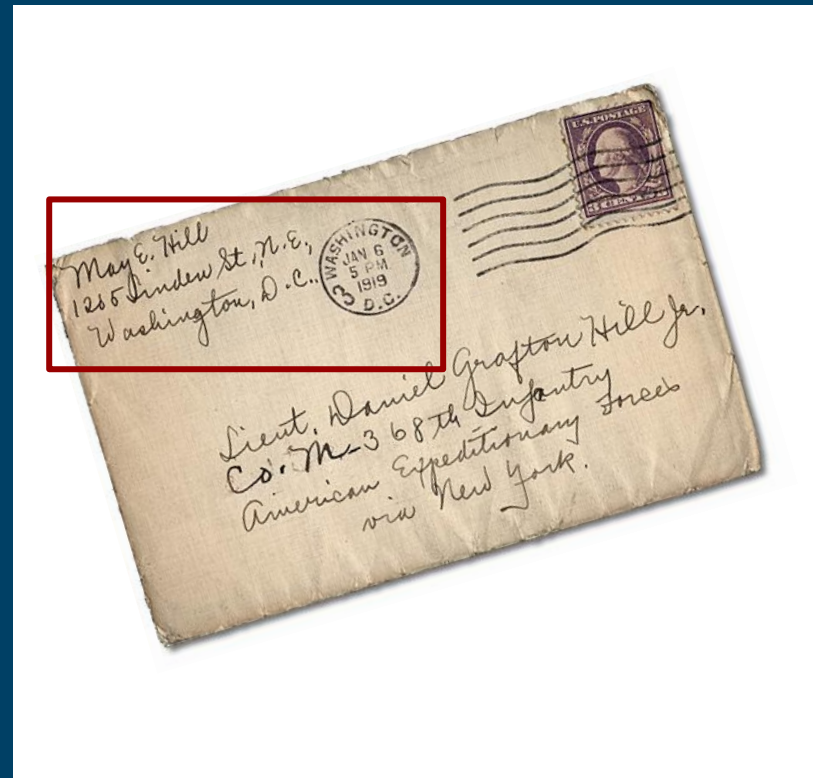 May E. Hill
1205 Linden St., N.E.,
Washington, D.C.
WASHINGTON
JAN 6
5 PM
1919
3 D.C.
U.S. POSTAGE
3 CENTS 3
Lieut. Daniel Grafton Hill Jr.
Co. M - 368th Infantry
American Expeditionary Forces
via New York.